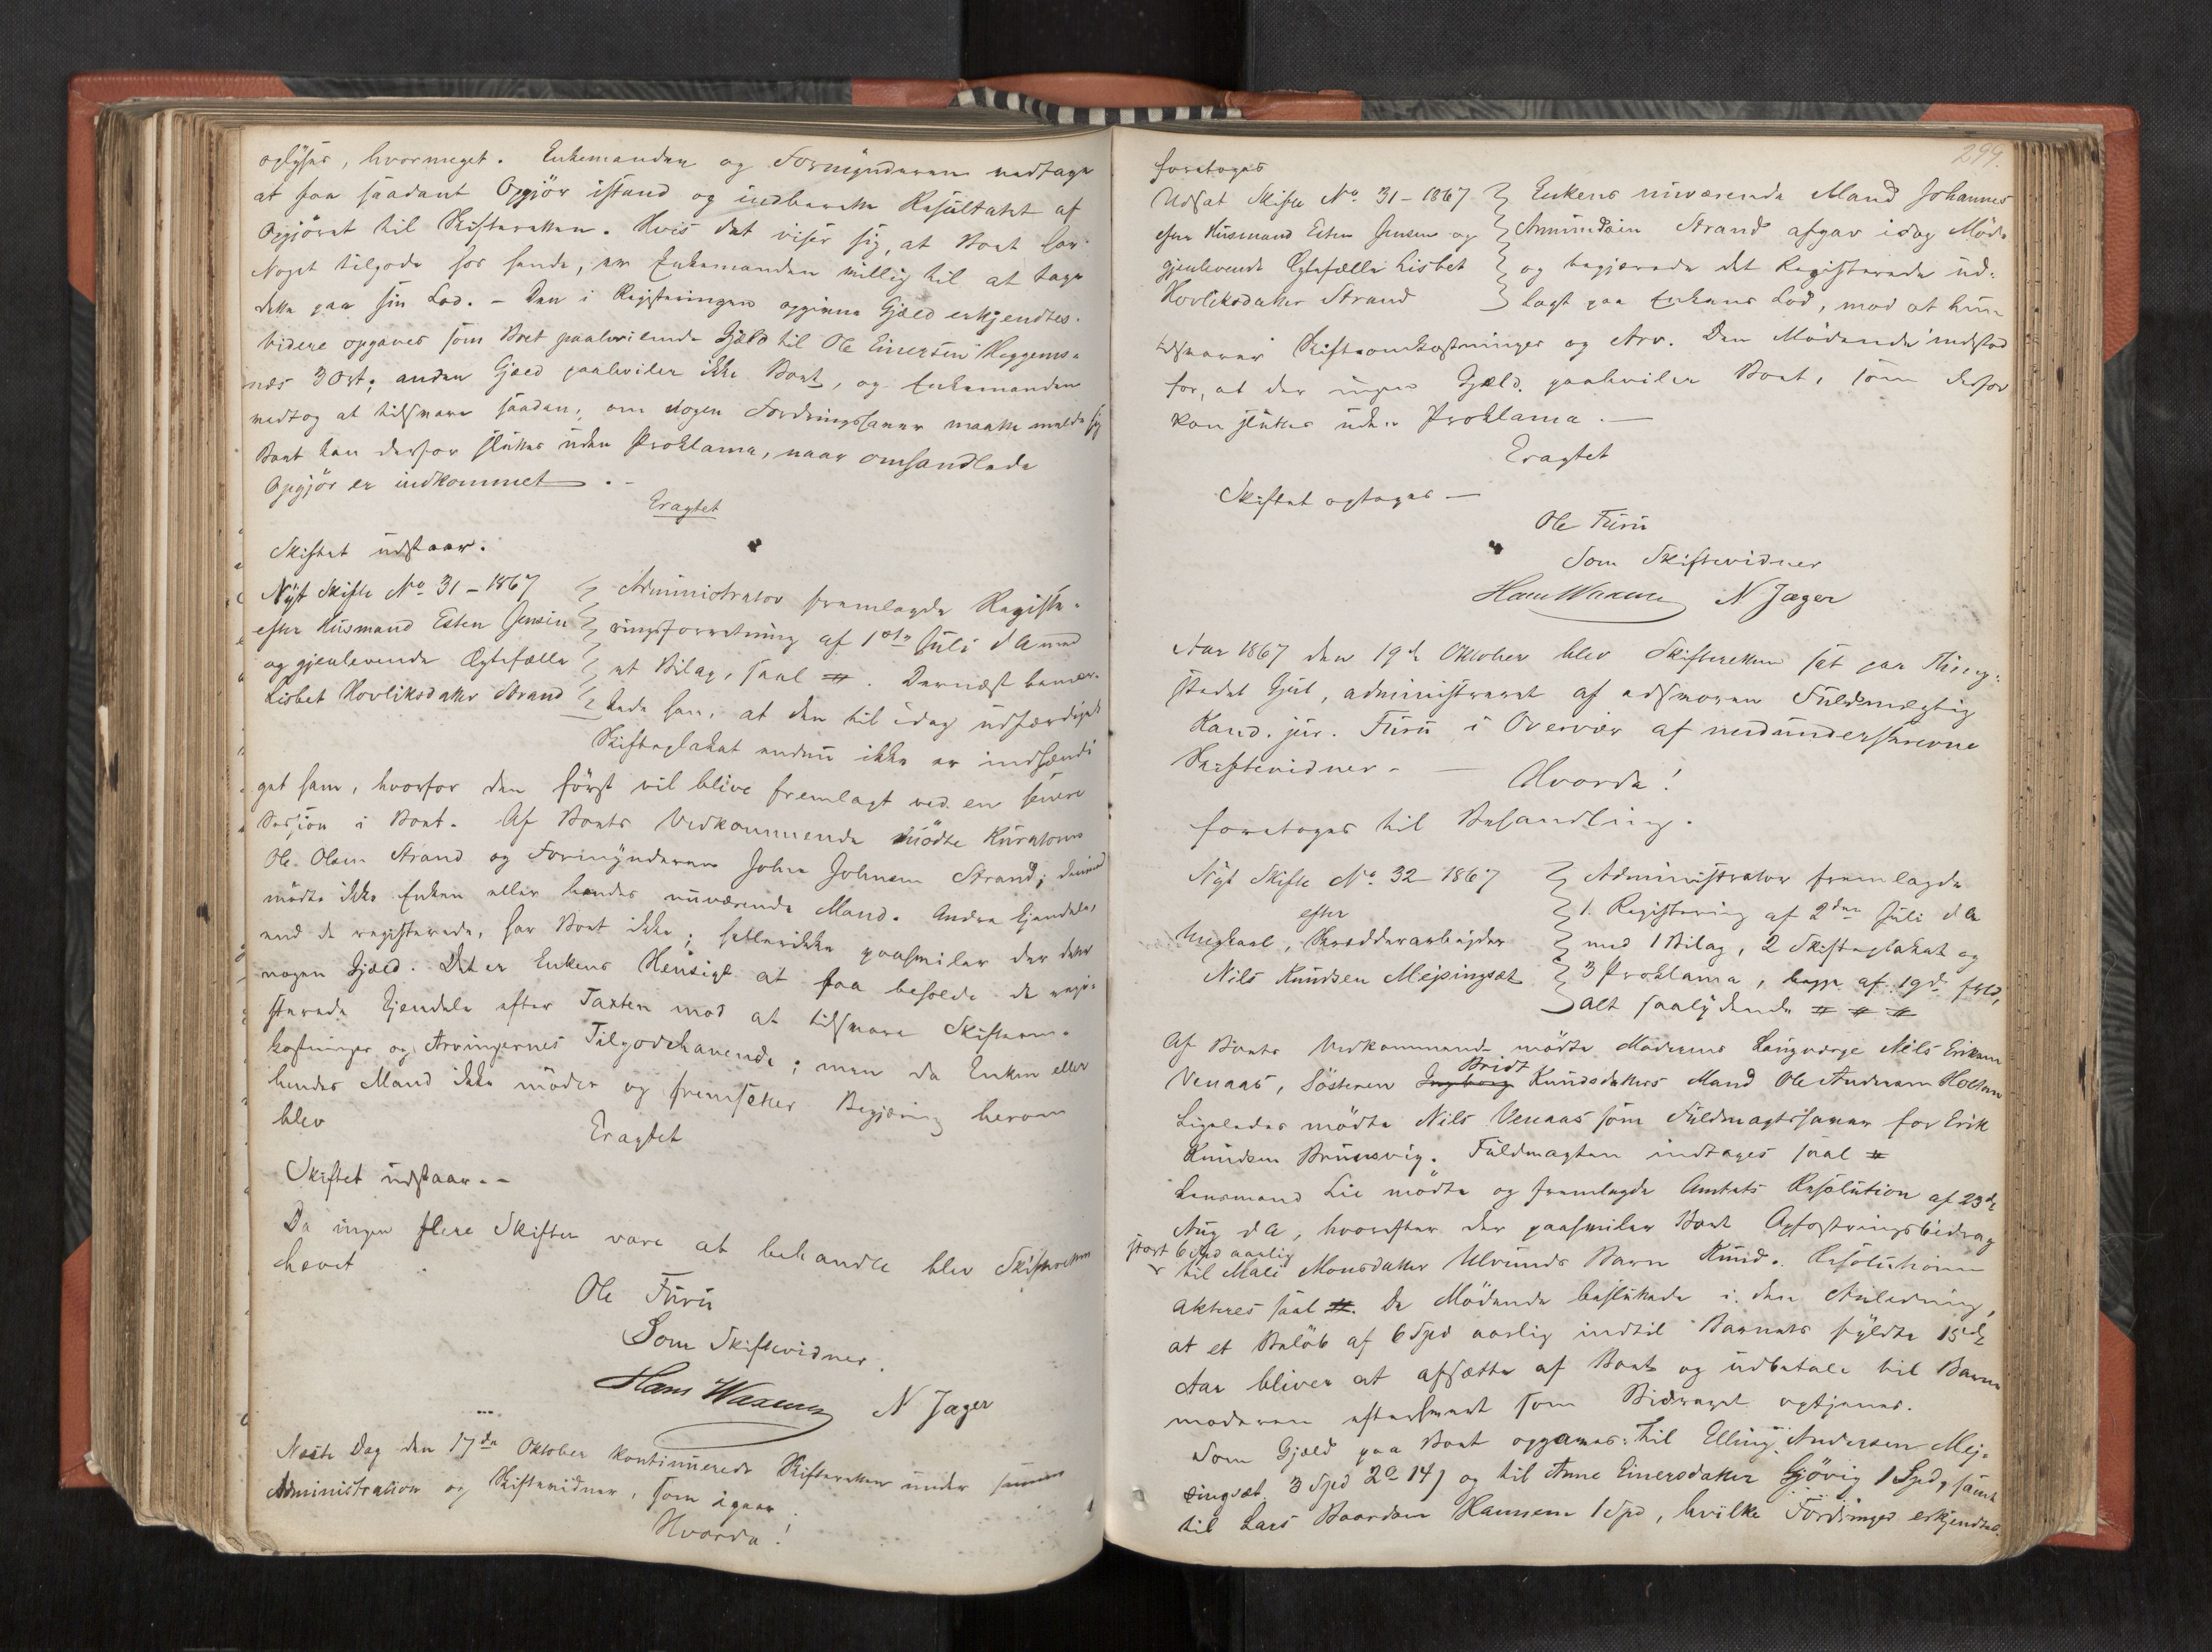 oplyser, hvormeget. Enkemanden og Formynderen vedtage
at faa saadant Opgjör istand og indberette Resultatet af
Opgjöret til Skifteretten. Hvis det viser sig, at Boet har
Noget tilgode hos hende, er Enkemanden villig til at tage
dette paa sin Lod. - Den i Registeringen opgivne Gjæld erkjendtes.
Videre opgaves som Boet paahvilende Gjæld til Ole Einersen Heggems-
næs 3 Ort; anden Gjæld paahviler ikke Boet, og Enkemanden
vedtog at tilsvare saadan, om Nogen Fordringshaver maatte melde sig
Boet kan derfor sluttes uden Proklama, naar omhandlede
Opgjör er indkommet. -
Eragtet
Skiftet udstaar.
Nyt Skifte No 31 - 1867
efter Husmand Esten Jensen
og gjenlevende Ægtefælle
Lisbet Hovliksdatter Strand
Administrator fremlagde Registe-
ringsforretning af 1ste Juli d A med
et Bilag, saal #. Dernæst bemær-
kede han, at den til idag udfærdigede
Skifteplakat endnu ikke er indsendt
get ham, hvorfor den först vil blive fremlagt ved en senere
Session i Boet. Af Boets Vedkommende mödte Kurator
Ole Olsen Strand og Formynderen John Johnsen Strand; derimod
mödte ikke Enken eller hendes nuværende Mand. Andre Eiendele,
end de registerede, har Boet ikke; hellerikke paahviler der dette
nogen Gjæld. Det er Enkens Hensigt at faa beholde de regi-
sterede Eiendele efter Taxten mod at tilsvare Skifteom-
kostninger og Arvingernes Tilgodehavende; men da Enken eller
hendes Mand ikke möder og fremsætter Begjæring herom
blev
Eragtet
Skiftet udstaar. -
Da ingen flere Skifter vare at behandle blev Skifteretten
hævet
Ole Furu
Som Skiftevidner.
Hans Waxen N Jæger
Næste Dag den 17de Oktober kontinuerede Skifteretten under samme
Administration og Skiftevidner, som igaar.
Hvorda!
299.
foretoges
Udsat Skifte No 31 - 1867
efter Husmand Esten Jensen og
gjenlevende Ægtefælle Lisbet
Hovliksdatter Strand
Enkens nuværende Mand Johannes
Amundsen Strand afgav idag Möde
og begjærede det Registerede ud-
lagt paa Enkens Lod, mod at hun
tilsvarer Skifteomkostninger og Arv. Den Mödende indestod
for, at der ingen Gjæld paahviler Boet, som derfor
kan sluttes uden Proklama. -
Eragtet
Skiftet optages -
Ole Furu
Som Skiftevidner
Hans Waxen N Jæger
Aar 1867 den 19de Oktober blev Skifteretten sat paa Thing-
stedet Gjul, administreret af edsvoren Fuldmægtig
Kand. jur. Furu i Overvær af medunderskrevne
Skiftevidner. -
Hvorda!
foretoges til Behandling.
Nyt Skifte No 32 - 1867
efter
Ungkarl, Skrædderarbejder
Nils Knudsen Mejsingsæt
Administrator fremlagde
1. Registering af 2den Juli d A
med 1 Bilag, 2 Skifteplakat og
3 Proklama, begge af 19de f M,
alt saalydende # # #
Af Boets Vedkommende mödte Moderens Laugværge Nils Eriksen
Venaas, Sösteren Ingeborg Bridt Knudsdatters Mand Ole Andersen Holten
Ligeledes mödte Nils Venaas som Fuldmagtshaver for Erik
Knudsen Brunsvig. Fuldmagten indtages saal #
Lensmand Lie mödte og fremlagde Amtets Resolution af 23de
Aug d A, hvorefter der paahviler Boet Opfostringsbidrag
stort 6 Spd aarlig
til Mali Monsdatter Ulvunds Barn Knud. Resolutionen
akteres saal #. De Mödende besluttede i den Anledning,
at et Belöb af 6 Spd aarlig indtil Barnets fyldte 15de
Aar bliver at afsætte af Boet og udbetale til Barne
moderen efterhvert som Bidraget optjenes.
Som Gjæld paa Boet opgaves: til Elling Andersen Mej-
singsæt 3 Spd 2 o 14 s og til Anne Einersdatter Gjövig 1 Spd, samt
til Lars Baardsen Hansem 1 Spd, hvilke Fordringer erkjendtes.